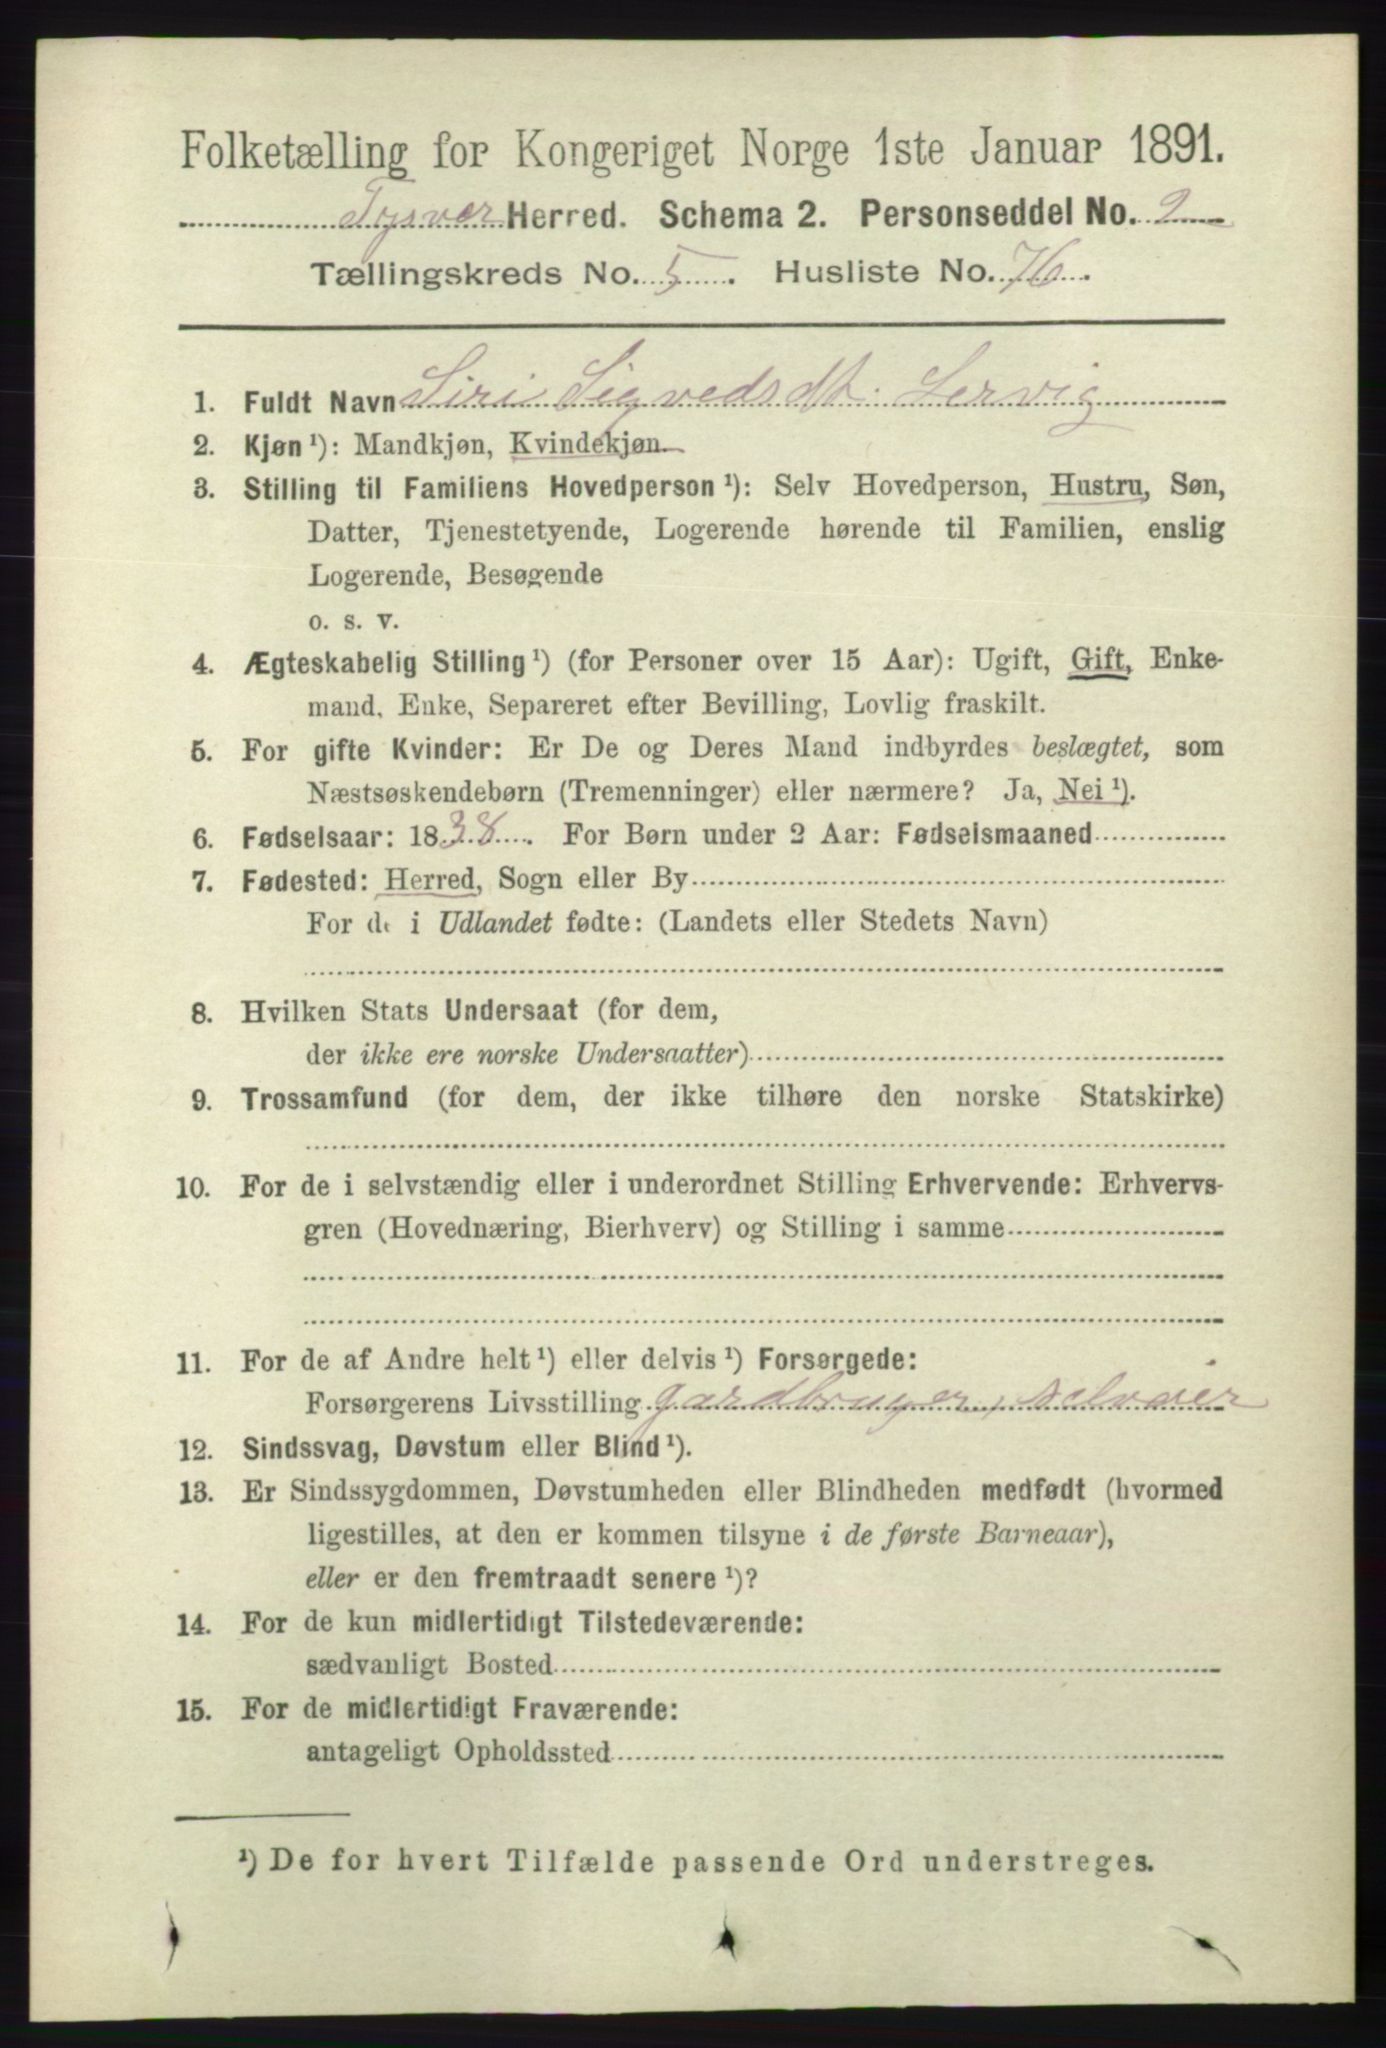 Folketælling for Kongeriget Norge 1ste Januar 1891.
Tysvær Herred. Schema 2. Personseddel No. 2
Tællingskreds No. 5. Husliste No. 76.
1. Fuldt Navn Siri Sigvedsdt. Lervig
2. Kjøn ¹): Mandkjøn, Kvindekjøn.
3. Stilling til Familiens Hovedperson ¹): Selv Hovedperson, Hustru, Søn,
Datter, Tjenestetyende, Logerende hørende til Familien, enslig
Logerende, Besøgende
o. s. v.
4. Ægteskabelig Stilling ¹) (for Personer over 15 Aar): Ugift, Gift, Enke-
mand, Enke, Separeret efter Bevilling, Lovlig fraskilt.
5. For gifte Kvinder: Er De og Deres Mand indbyrdes beslægtet, som
Næstsøskendebørn (Tremenninger) eller nærmere? Ja, Nei ¹).
6. Fødselsaar: 1838. For Børn under 2 Aar: Fødselsmaaned
7. Fødested: Herred, Sogn eller By
For de i Udlandet fødte: (Landets eller Stedets Navn)
8. Hvilken Stats Undersaat (for dem,
der ikke ere norske Undersaatter)
9. Trossamfund (for dem, der ikke tilhøre den norske Statskirke)
10. For de i selvstændig eller i underordnet Stilling Erhvervende: Erhvervs-
gren (Hovednæring, Bierhverv) og Stilling i samme
11. For de af Andre helt ¹) eller delvis ¹) Forsørgede:
Forsørgerens Livsstilling gardbruger, selveier
12. Sindssvag, Døvstum eller Blind ¹).
13. Er Sindssygdommen, Døvstumheden eller Blindheden medfødt (hvormed
ligestilles, at den er kommen tilsyne i de første Barneaar),
eller er den fremtraadt senere ¹)?
14. For de kun midlertidigt Tilstedeværende:
sædvanligt Bosted
15. For de midlertidigt Fraværende:
antageligt Opholdssted
¹) De for hvert Tilfælde passende Ord understreges.